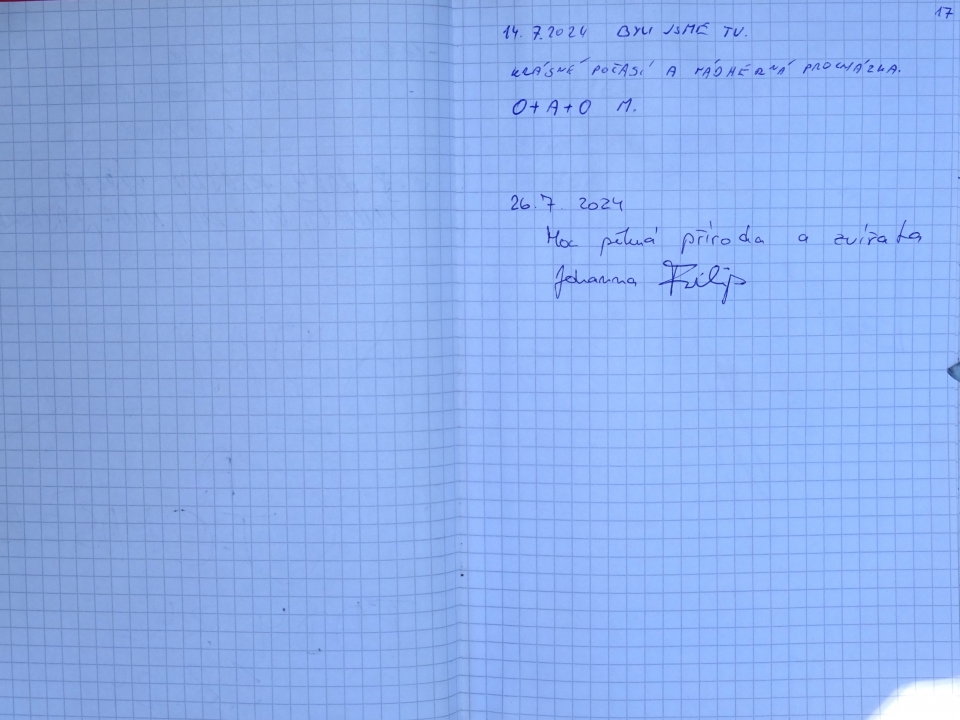 17
14. 7. 2024 BYLI JSME TU.
KRÁSNÉ POČASÍ A NÁDHERNÁ PROCHÁZKA.
O+A+O M.
26. 7 2024
Moc pěkná příroda a zvířata
Johanna Filip